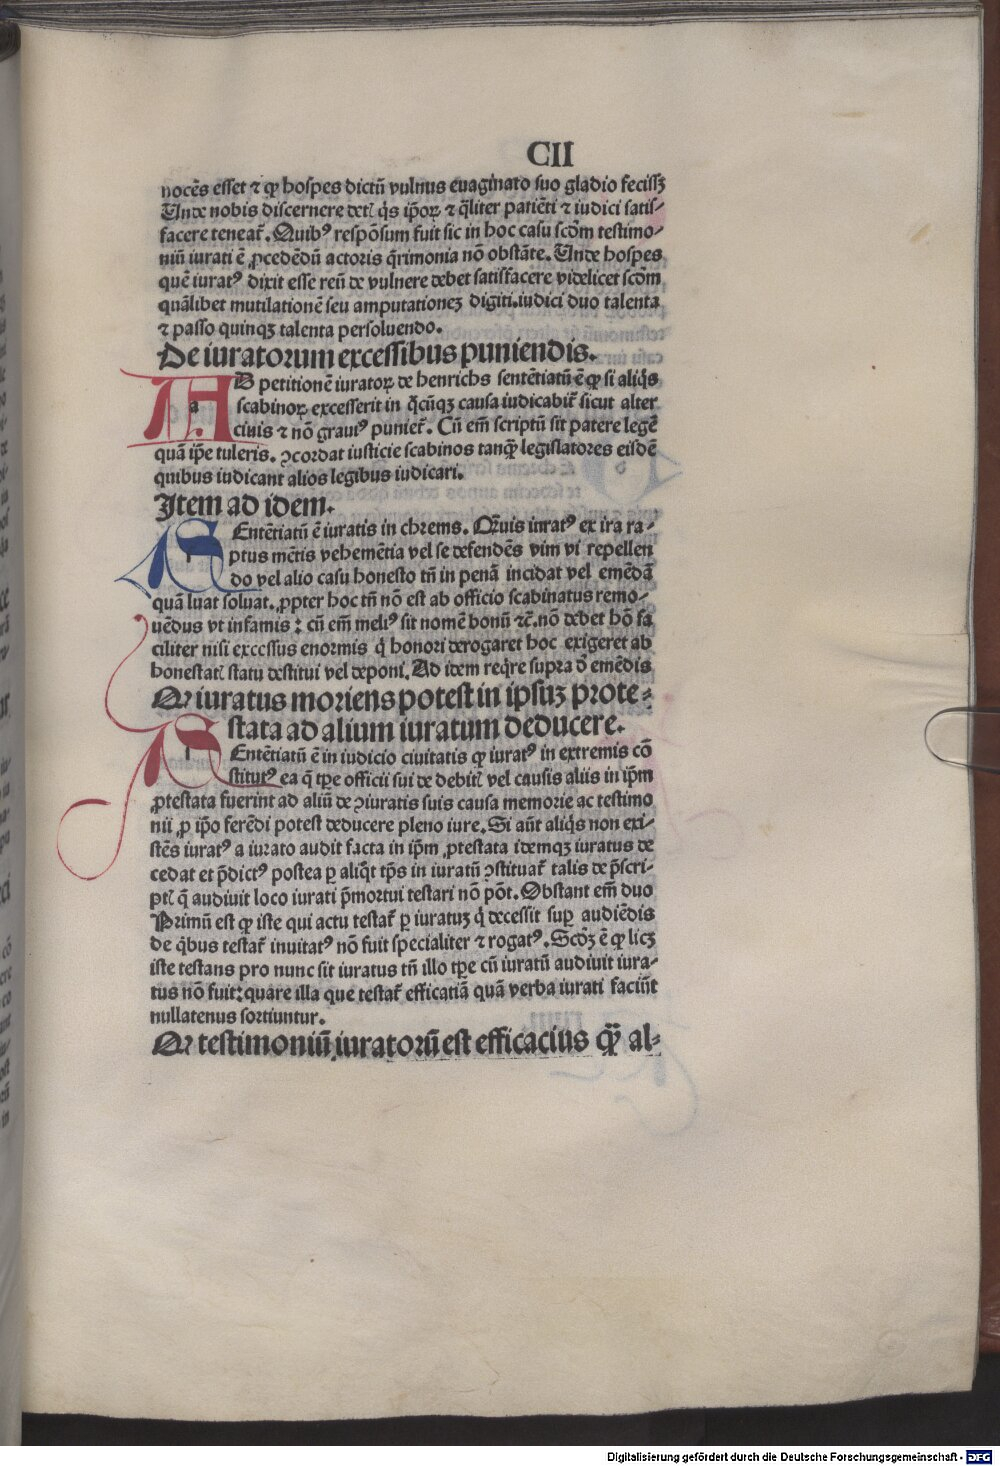 CII
nocēs esset ⁊ ꝙ hospes dictū vulnus euaginato suo gladio fecissꝫ
Unde nobis discernere detꝉ q̇s ip̄oꝝ ⁊ q̄liter patiēti ⁊ iudici satis⸗
facere teneat᷑. Quibꝰ respōsum fuit sic in hoc casu scd̄m testimo⸗
niū iurati ē ꝓcedēdū actoris q̄rimonia nō obstāte. Unde hospes
quē iuratꝰ dixit esse reū de vulnere debet satisfacere videlicet scd̄m
quālibet mutilationē seu amputationeꝫ digiti. iudici duo talenta
⁊ passo quinqꝫ talenta persoluendo.
De iuratorum excessibus puniendis.
AD petitionē iuratoꝝ de henrichs sentētiatū ē ꝙ si aliq̇s
scabinoꝝ excesserit in q̄cūqꝫ causa iudicabit᷑ sicut alter
ciuis ⁊ nō grauiꝰ puniet᷑. Cū em̄ scriptū sit patere legē
quā ip̄e tuleris. ꝯcordat iusticie scabinos tanꝙ̄ legislatores eisdē
quibus iudicant alios legibus iudicari.
Item ad idem.
SEntētiatū ē iuratis in chrems. Qr̄uis iuratꝰ ex ira ra⸗
ptus mētis vehemētia vel se defendēs vim vi repellen
do vel alio casu honesto tn̄ in penā incidat vel emēdā
quā luat soluat. ꝓpter hoc tn̄ nō est ab officio scabinatus remo⸗
uēdus vt infamis: cū em̄ meliꝰ sit nomē bonū ⁊c̄. nō debet hō fa
ciliter nisi excessus enormis q̇ honori derogaret hoc exigeret ab
honestatꝉ statu destitui vel deponi. Ad idem req̄re supra d̄ emēdis
Qꝛ iuratus moriens potest in ipsuꝫ prote⸗
stata ad alium iuratum deducere.
SEntētiatū ē in iudicio ciuitatis ꝙ iuratꝰ in extremis cō
stitutꝰ ea q̄ tꝑe officii sui de debitꝉ vel causis aliis in ip̄m
ꝓtestata fuerint ad aliū de ꝯiuratis suis causa memorie ac testimo
nii ꝑ ip̄o ferēdi potest deducere pleno iure. Si aūt aliq̇s non exi⸗
stēs iuratꝰ a iurato audit facta in ip̄m ꝓtestata idemqꝫ iuratus de
cedat et p̄dictꝰ postea ꝑ aliq̇t tp̄s in iuratū ꝯstituat᷑ talis de p̄scri⸗
ptꝉ q̄ audiuit loco iurati p̄mortui testari nō pōt. Obstant em̄ duo
Primū est ꝙ iste qui actu testat᷑ ꝑ iuratuꝫ q̇ decessit suꝑ audiēdis
de q̇bus testat᷑ inuitatꝰ nō fuit specialiter ⁊ rogatꝰ. Scd̄ꝫ ē ꝙ licꝫ
iste testans pro nunc sit iuratus tn̄ illo tꝑe cū iuratū audiuit iura⸗
tus nō fuit: quare illa que testat᷑ efficatiā quā verba iurati faciūt
nullatenus sortiuntur.
Qꝛ testimoniū iuratorū est efficacius ꝙ̄ al⸗
Digitalisierung gefördert durch die Deutsche Forschungsgemeinschaft - DFG